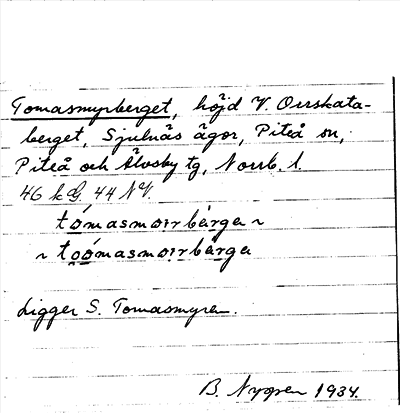 Tomasmyrberget, höjd V. Orrskata-
berget, Sjulnäs ägor, Piteå sn,
Piteå och Älvsby tg, Norrb. l.
46 k G. 44 NV.
tómasmoırbàrga ~
~ toómasmoırbàrga
Ligger S. Tomasmyren.
B. Nygren 1934.